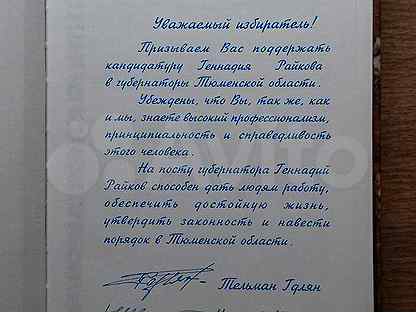 Уважаемый избиратель!
Призываем Вас поддержать
кандидатуру Геннадия Райкова
в губернаторы Тюменской области.
Убеждены, что Вы, так же, как
и мы, знаете высокий профессионализм,
принципиальность и справедливость
этого человека.
На посту губернатора Геннадий
Райков способен дать людям работу,
обеспечить достойную жизнь,
утвердить законность и навести
порядок в Тюменской области.
Тельман Гдлян
Avito